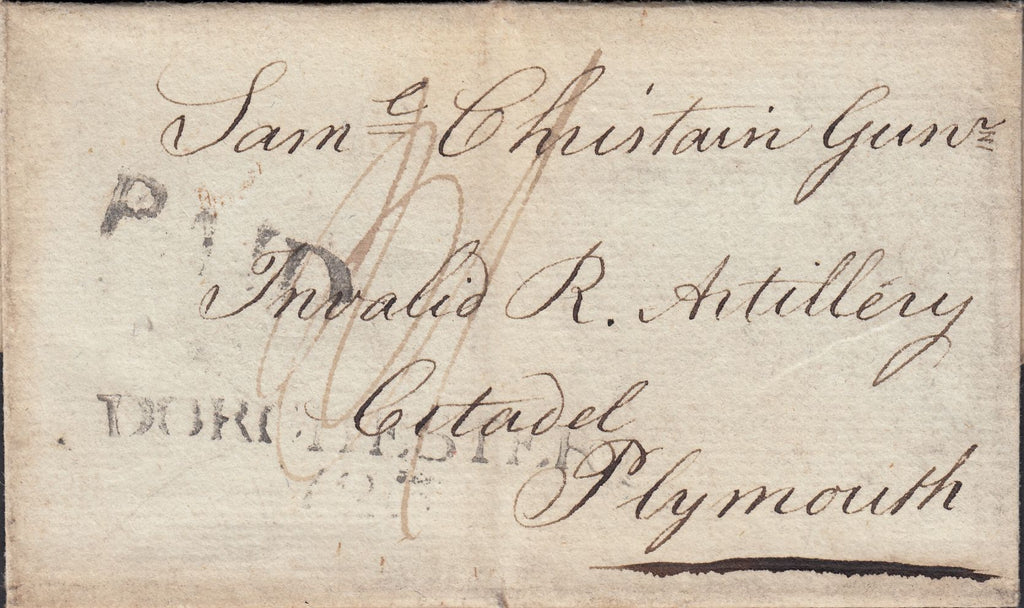 Samˡ Christain Gunʳ
PAID
Invalid R. Artillery
Citadel
DORCHESTER
Plymouth